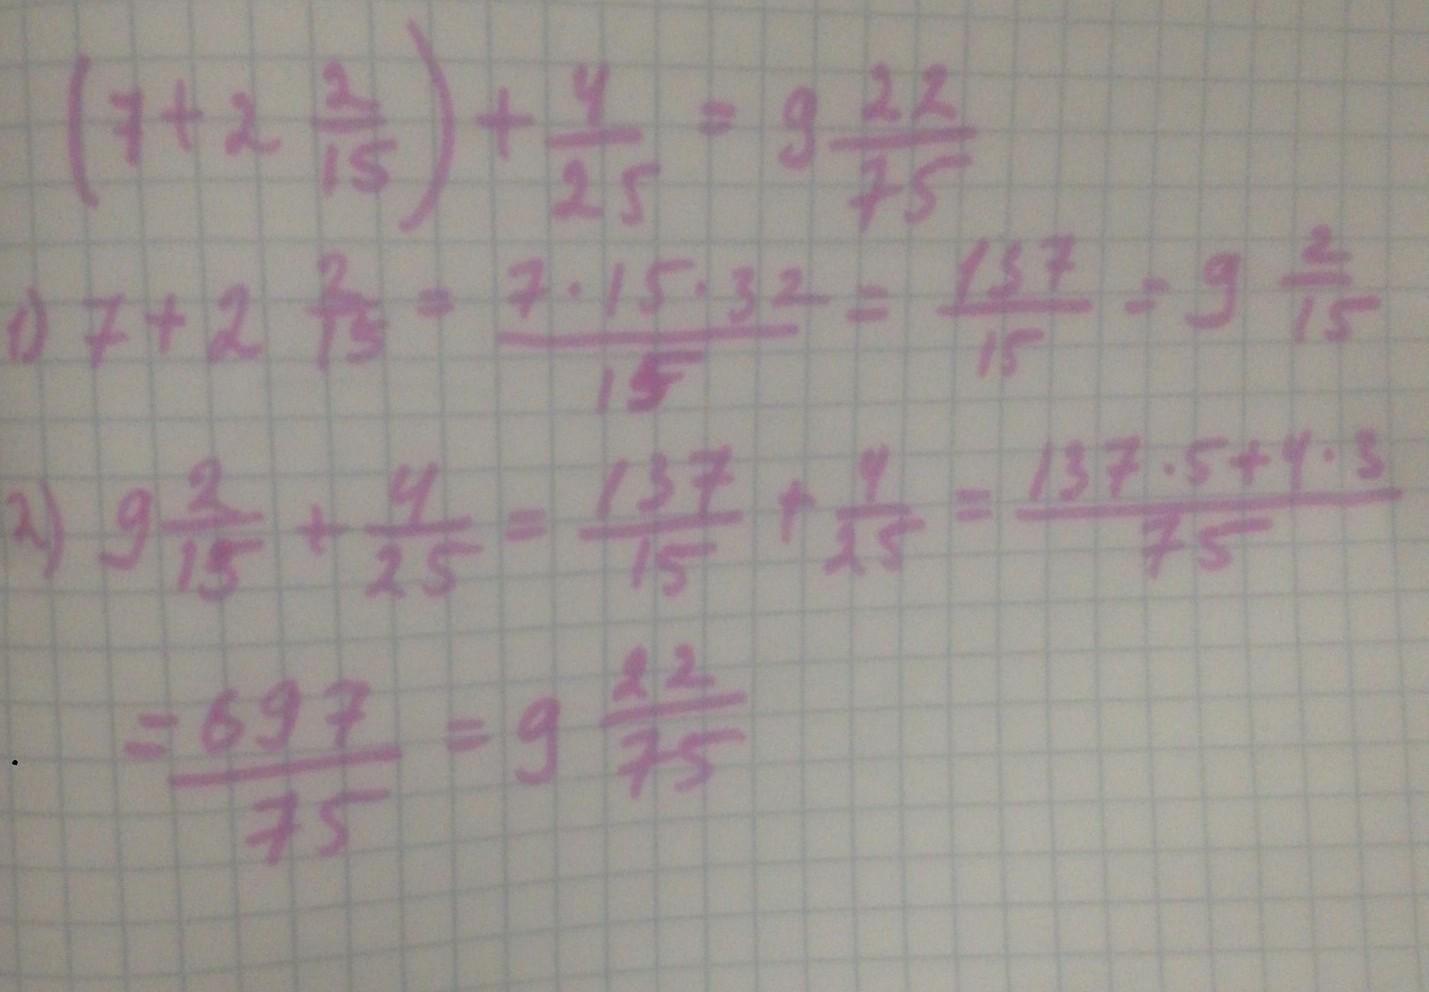 (7+2 2/15) + 4/25 = 9 22/75
1) 7+2 2/15 = 7·15·32/15 = 137/15 = 9 2/15
2) 9 2/15 + 4/25 = 137/15 + 4/25 = 137·5+4·3/75
= 697/75 = 9 22/75